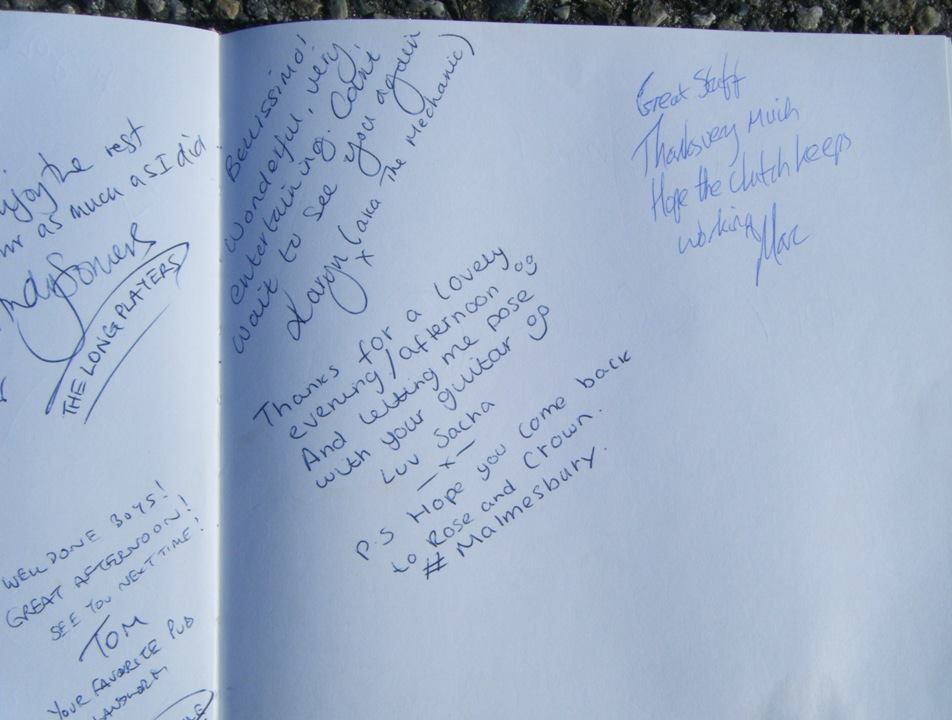 enjoy the rest
as much as I did
THE LONG PLAYERS
WELL DONE BOYS!
GREAT AFTERNOON!
SEE YOU NEXT TIME!
TOM
YOUR FAVORITE PUB
Bellissimo!
Wonderful, very
entertaining. Can't
wait to see you again
(aka The Mechanic)
x
Thanks for a lovely
evening/afternoon
And letting me pose
with your guitar
Luv Sacha
— x —
P.S Hope you come back
to Rose and Crown.
# Malmesbury.
Great Stuff
Thanks very much
Hope the clutch keeps
working Marc